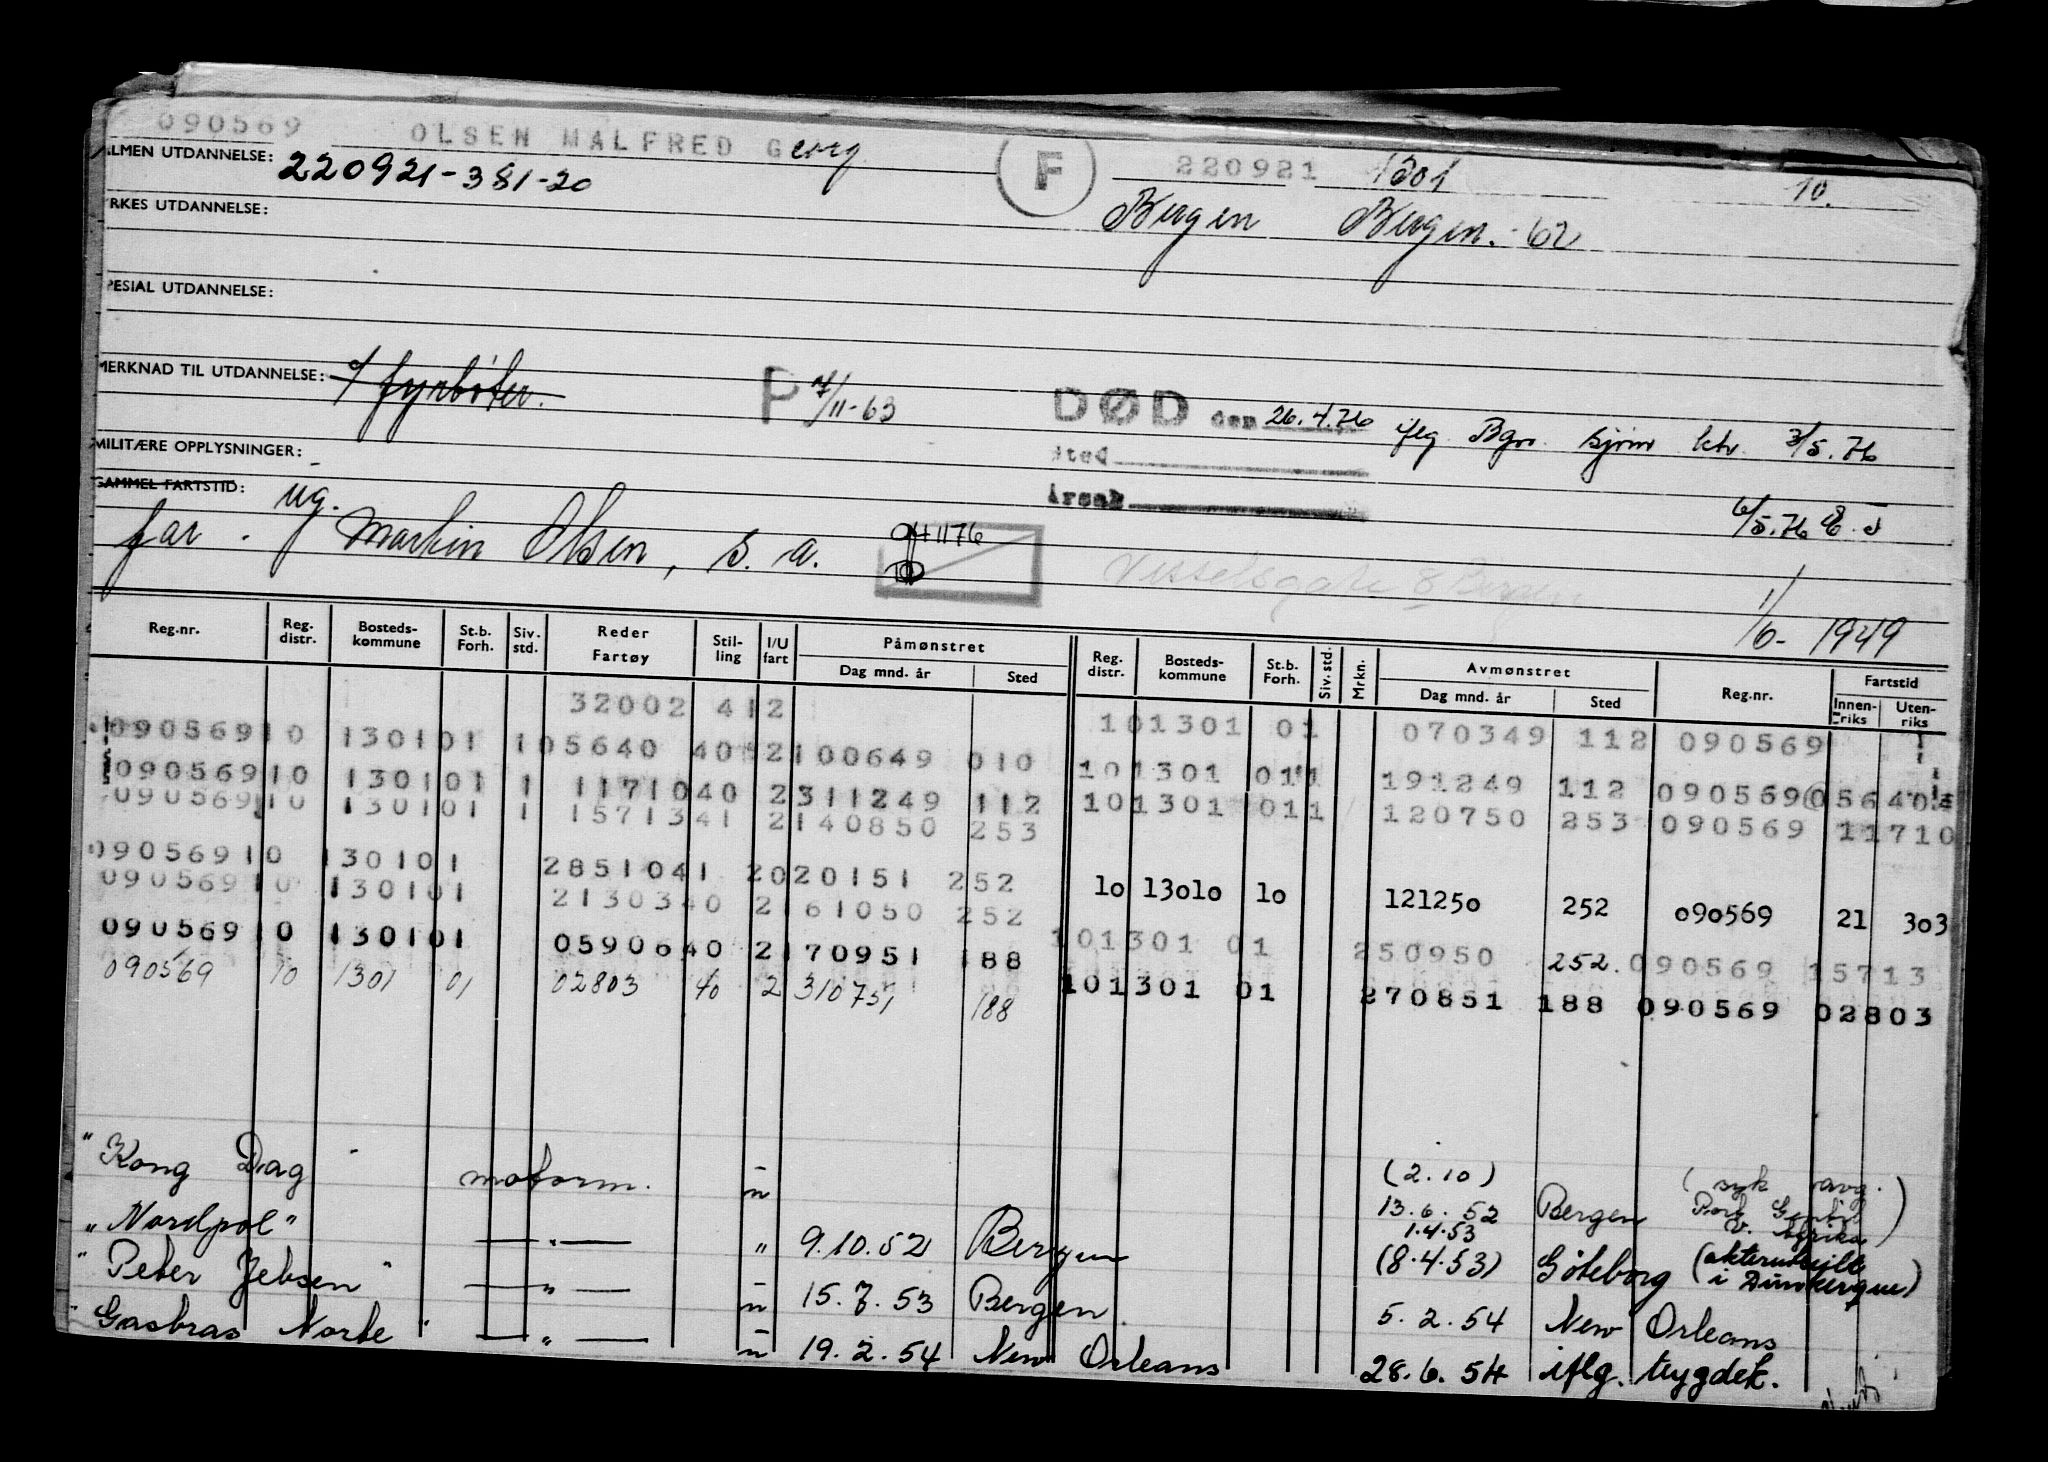 090569 OLSEN MALFRED Georg F 220921 1301 10.
ALMEN UTDANNELSE: 220921-381-20
YRKES UTDANNELSE: Bergen Bergen. -62
SPESIAL UTDANNELSE:
MERKNAD TIL UTDANNELSE: fyrbøter. P 7/11-63 DØD den 26.4.76 iflg. Bgn. sjøm ktr. 3/5.76
MILITÆRE OPPLYSNINGER: Sted
GAMMEL FARTSTID: ug. Årsak 6/5.76
far. Martin Olsen, s. a. 1176
Vesselsgate 8 Bergen
1/6- 1949
Reg.nr. Reg. distr. Bosteds- kommune St.b. Forh. Siv. std. Reder Fartøy Stil- ling I/U fart Påmønstret Dag mnd. år Sted Reg. distr. Bosteds- kommune St.b. Forh. Siv. std. Mrkn. Avmønstret Dag mnd. år Sted Reg.nr. Fartstid Innen- riks Uten- riks
32002 412 101301 01 070349 112 090569
09056910 130101 105640 40 2100649 010 101301 011 191249 112 090569 05640
09056910 130101 1 1171040 2311249 112 101301 011 120750 253 090569 11710
09056910 130101 1 1571341 2140850 253
09056910 130101 2851041 2020151 252 10 13010 10 121250 252 090569 21 303
09056910 130101 2130340 2161050 252 101301 01 250950 252. 090569 15713
09056910 130101 0590640 2170951 188 101301 01 270851 188 090569 02803
090569 10 1301 01 02803 40 2 310751 188
"Kong Dag" motorm. u (2.10) 13.6.52 Bergen (syk avg. Port Gentil V. Afrika)
"Nordpol" —"— " 9.10.52 Bergen 1.4.53 (8.4.53) Göteborg (akterutseilt i Dunkerque)
"Peter Jebsen" —"— u 15.7.53 Bergen. 5.2.54 New Orleans
"Gasbras Norte" —"— u 19.2.54 New Orleans 28.6.54 iflg. trygdek.